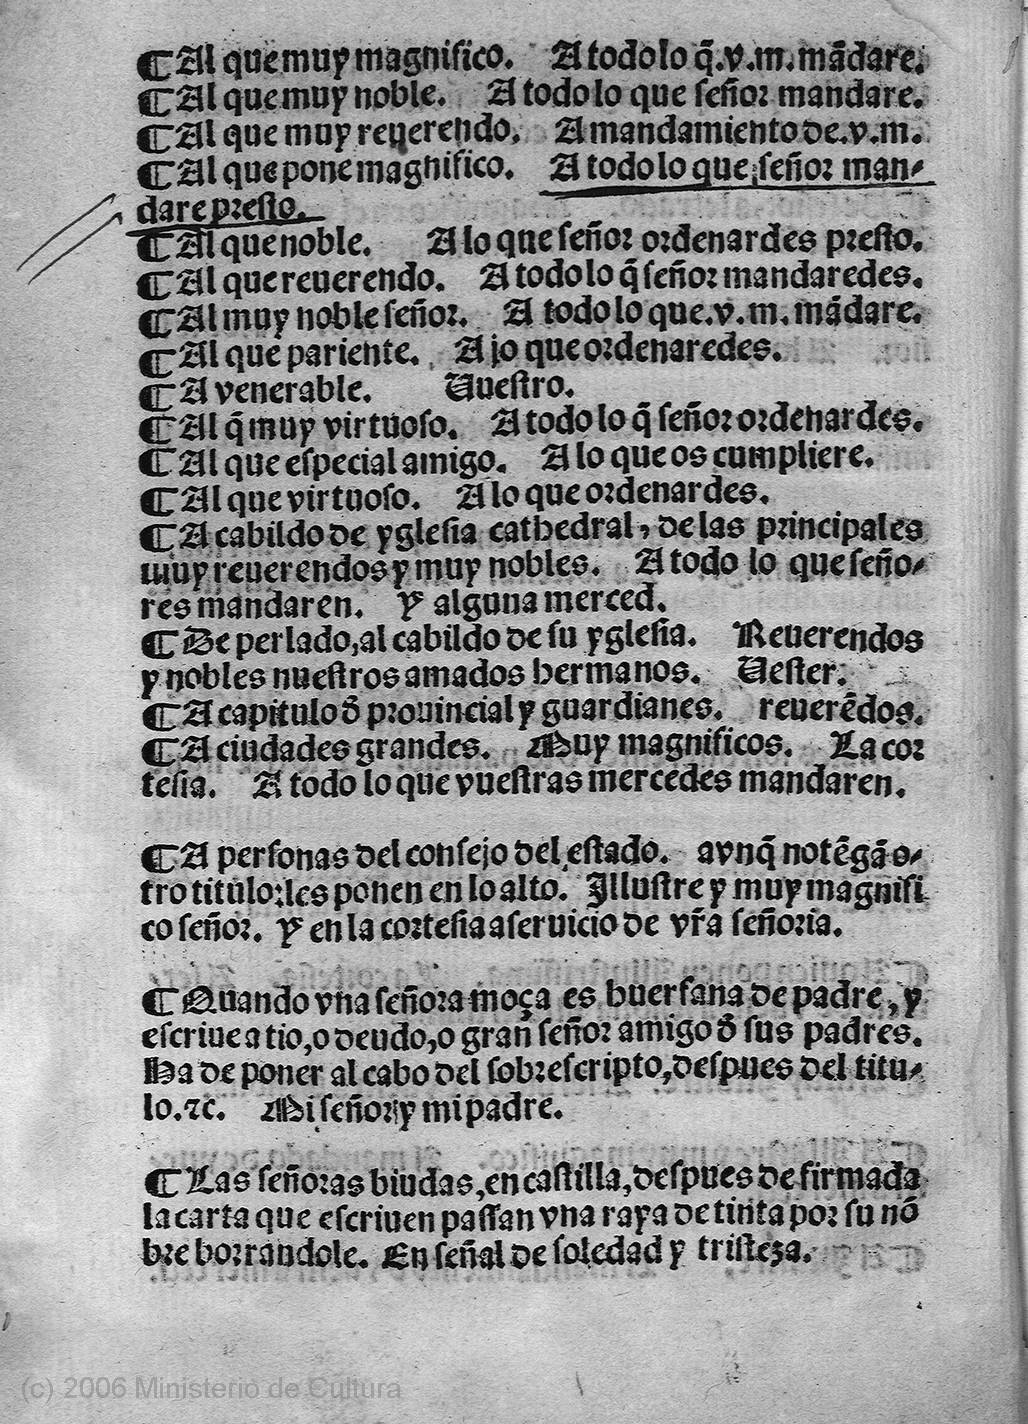 ¶Al que muy magnifico. A todo lo q̃.v.m.mãdare.
¶Al que muy noble. A todo lo que señor mandare.
¶Al que muy reuerendo. A mandamiento de.v.m.
¶Al que pone magnifico. A todo lo que señor man-
dare presto.
¶Al que noble. A lo que señor ordenardes presto.
¶Al que reuerendo. A todo lo q̃ señor mandaredes.
¶Al muy noble señor. A todo lo que.v.m.mãdare.
¶Al que pariente. A jo que ordenaredes.
¶A venerable. Uuestro.
¶Al q̃ muy virtuoso. A todo lo q̃ señor ordenardes.
¶Al que especial amigo. A lo que os cumpliere.
¶Al que virtuoso. A lo que ordenardes.
¶A cabildo de yglesia cathedral, de las principales
muy reuerendos y muy nobles. A todo lo que seño-
res mandaren. Y alguna merced.
¶De perlado, al cabildo de su yglesia. Reuerendos
y nobles nuestros amados hermanos. Uester.
¶A capitulo d̃ prouincial y guardianes. reuerẽdos.
¶A ciudades grandes. Muy magnificos. La cor
tesia. A todo lo que vuestras mercedes mandaren.
¶A personas del consejo del estado. avnq̃ no tẽgã o-
tro titulo: les ponen en lo alto. Illustre y muy magnifi
co señor. Y en la cortesia a seruicio de vr̃a señoria.
¶Quando vna señora moça es huerfana de padre, y
escriue a tio, o deudo, o gran señor amigo d̃ sus padres.
Ha de poner al cabo del sobrescripto, despues del titu-
lo.⁊c. Mi señor y mi padre.
¶Las señoras biudas, en castilla, despues de firmada
la carta que escriuen passan vna raya de tinta por su nõ
bre borrandole. En señal de soledad y tristeza.
(c) 2006 Ministerio de Cultura